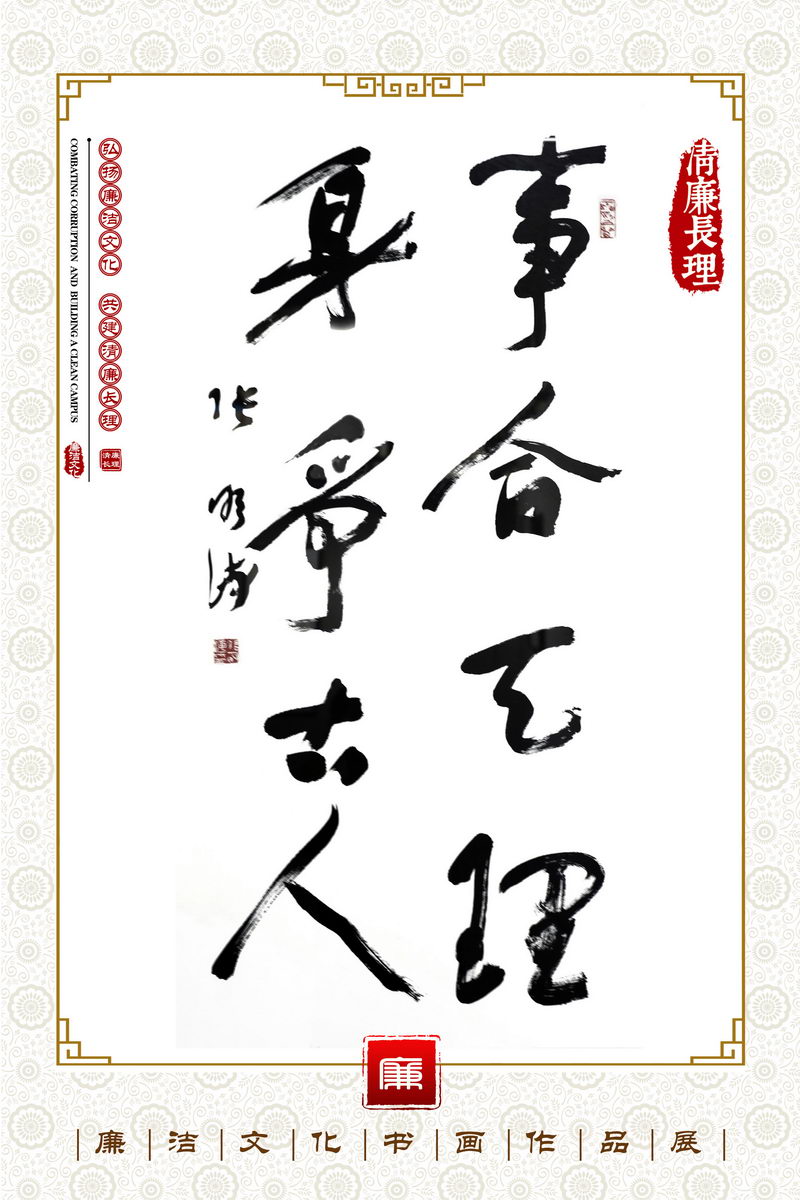 清廉長理
事合天理
身爭古人
弘扬廉洁文化 共建清廉长理
COMBATING CORRUPTION AND BUILDING A CLEAN CAMPUS
清廉长理
廉洁文化
廉
廉洁文化书画作品展